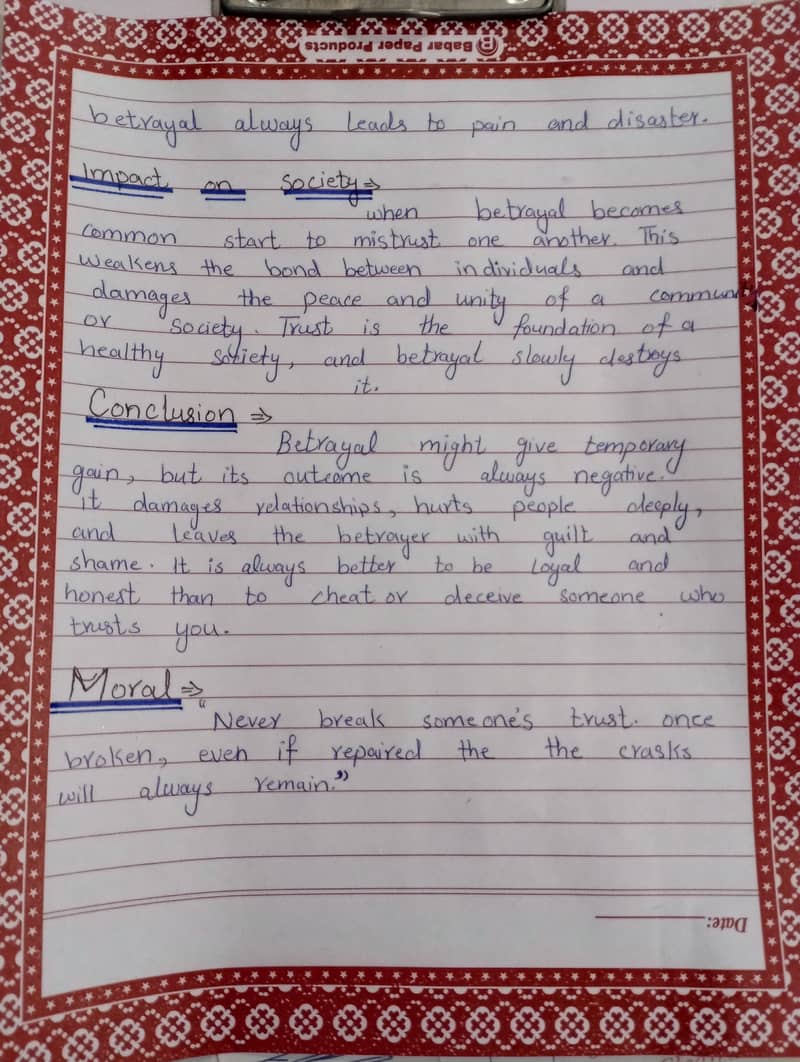 Babar Paper Products
betrayal always leads to pain and disaster.
Impact on Society ⇒
when betrayal becomes
common start to mistrust one another. This
weakens the bond between individuals and
damages the peace and unity of a communi
or Society. Trust is the foundation of a
healthy society, and betrayal slowly destroys
it.
Conclusion ⇒
Betrayal might give temporary
gain, but its outcome is always negative.
it damages relationships, hurts people deeply,
and leaves the betrayer with guilt and
shame. It is always better to be Loyal and
honest than to cheat or deceive someone who
trusts you.
Moral ⇒
"Never break someone's trust. once
broken, even if repaired the the crasks
will always remain."
Date: